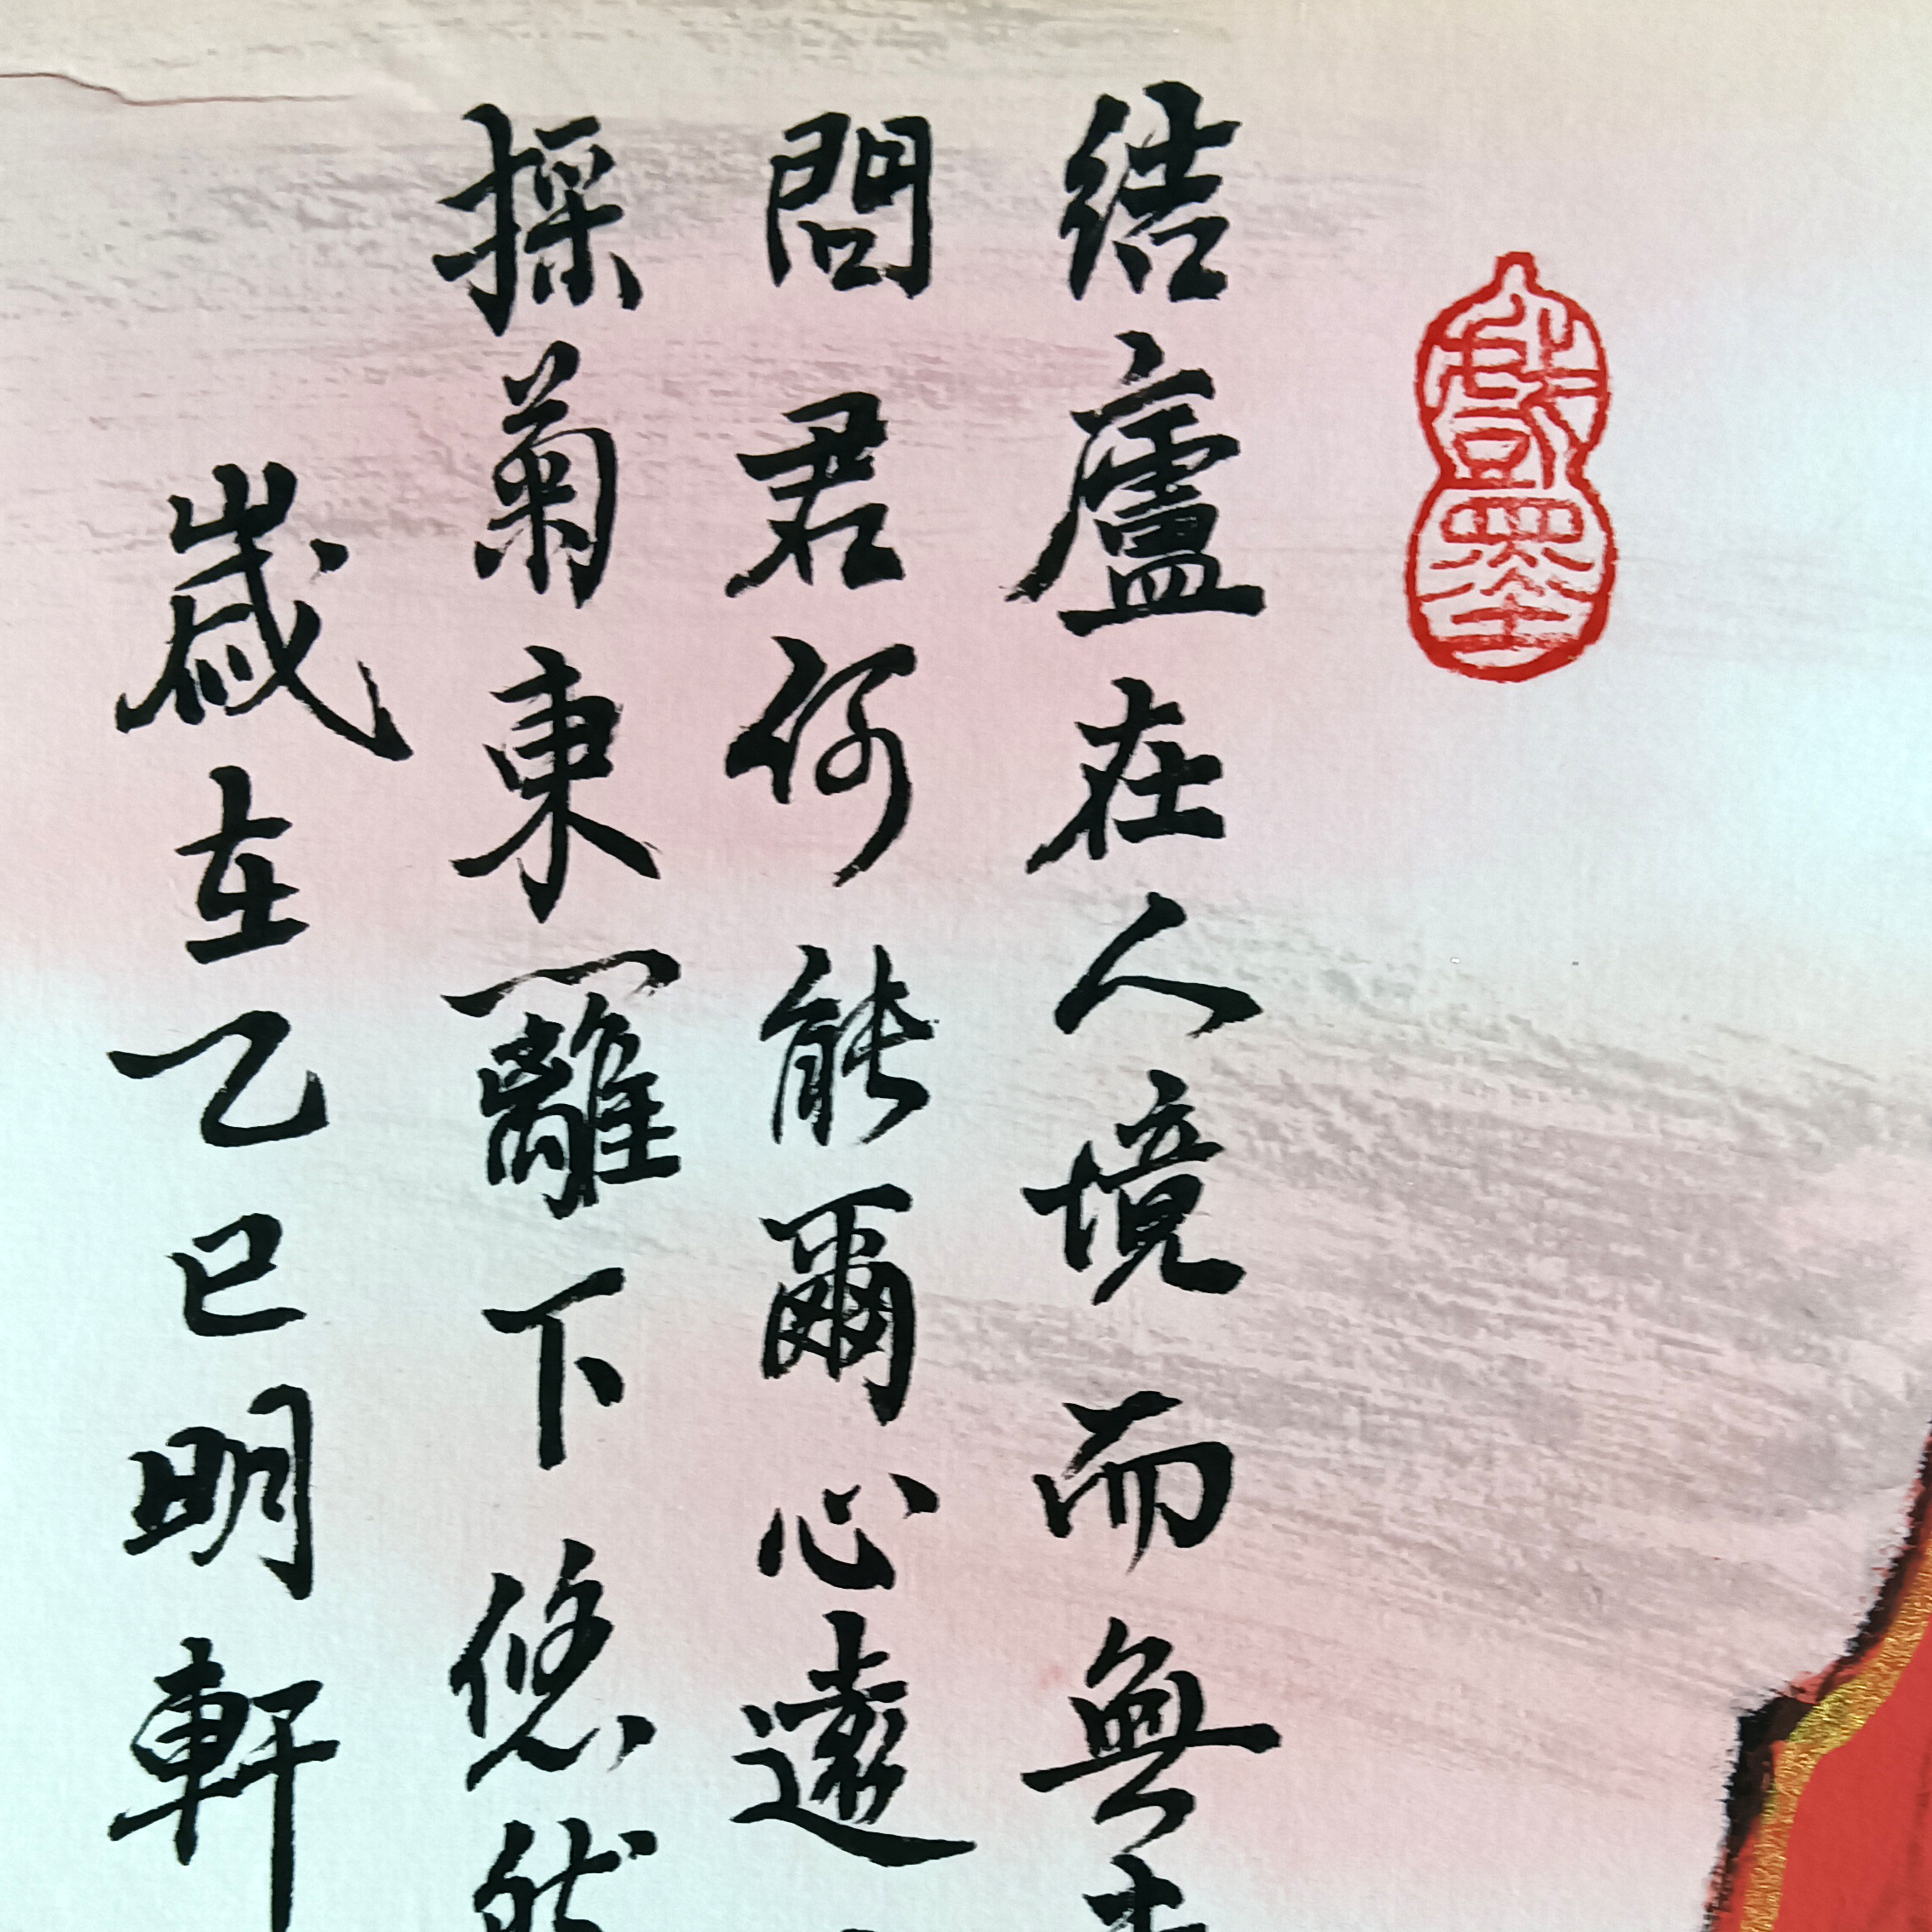 結廬在人境而無車
問君何能爾心遠
採菊東籬下悠然
歲在乙巳明軒
戲墨